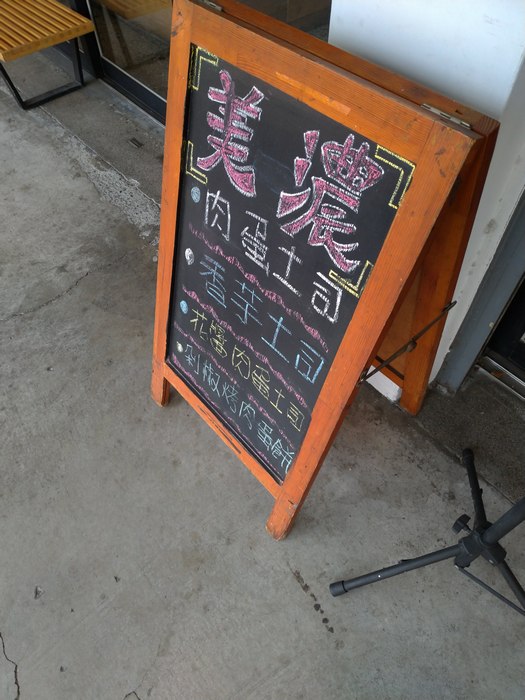 美濃
肉蛋土司
香芋土司
花醬肉蛋土司
剁椒烤肉蛋餅